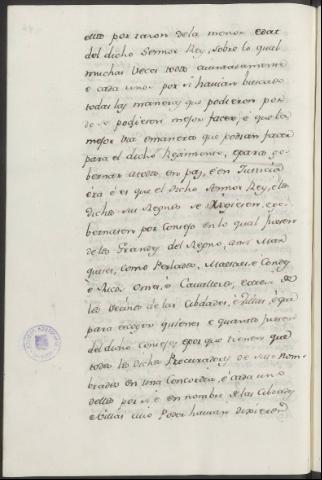 ellos por razon de la menor edat
del dicho Sennor Rey, sobre lo qual
muchas veces todos aiuntadamente
e cada uno por si havian buscado
todas las maneras que podieron por
do se podieron mejor facer, e que la
mejor via e manera que podian facer
para el dicho Regimiento, e para go-
bernar a todos en paz, e en Justicia
era e es que el dicho Sennor Rey, e los
dichos sus Regnos se rigiesen, e go-
bernasen por Consejo en lo qual fuesen
de los Grandes del Regno, asi Mar
queses, como Perlados, Maestres e Condes
e Ricos omes, o Cavalleros, e otros de
los vecinos de las Cibdades, e Villas, e que
para escoger quienes e quantos fuesen
del dicho Consejo, e por que tienen que
todos los dichos Procuradores de suso Nom
brados en una Concordia, e cada uno
dellos por si e en nombre de las Cibdades
e Villas cuio Poder havian dixieron